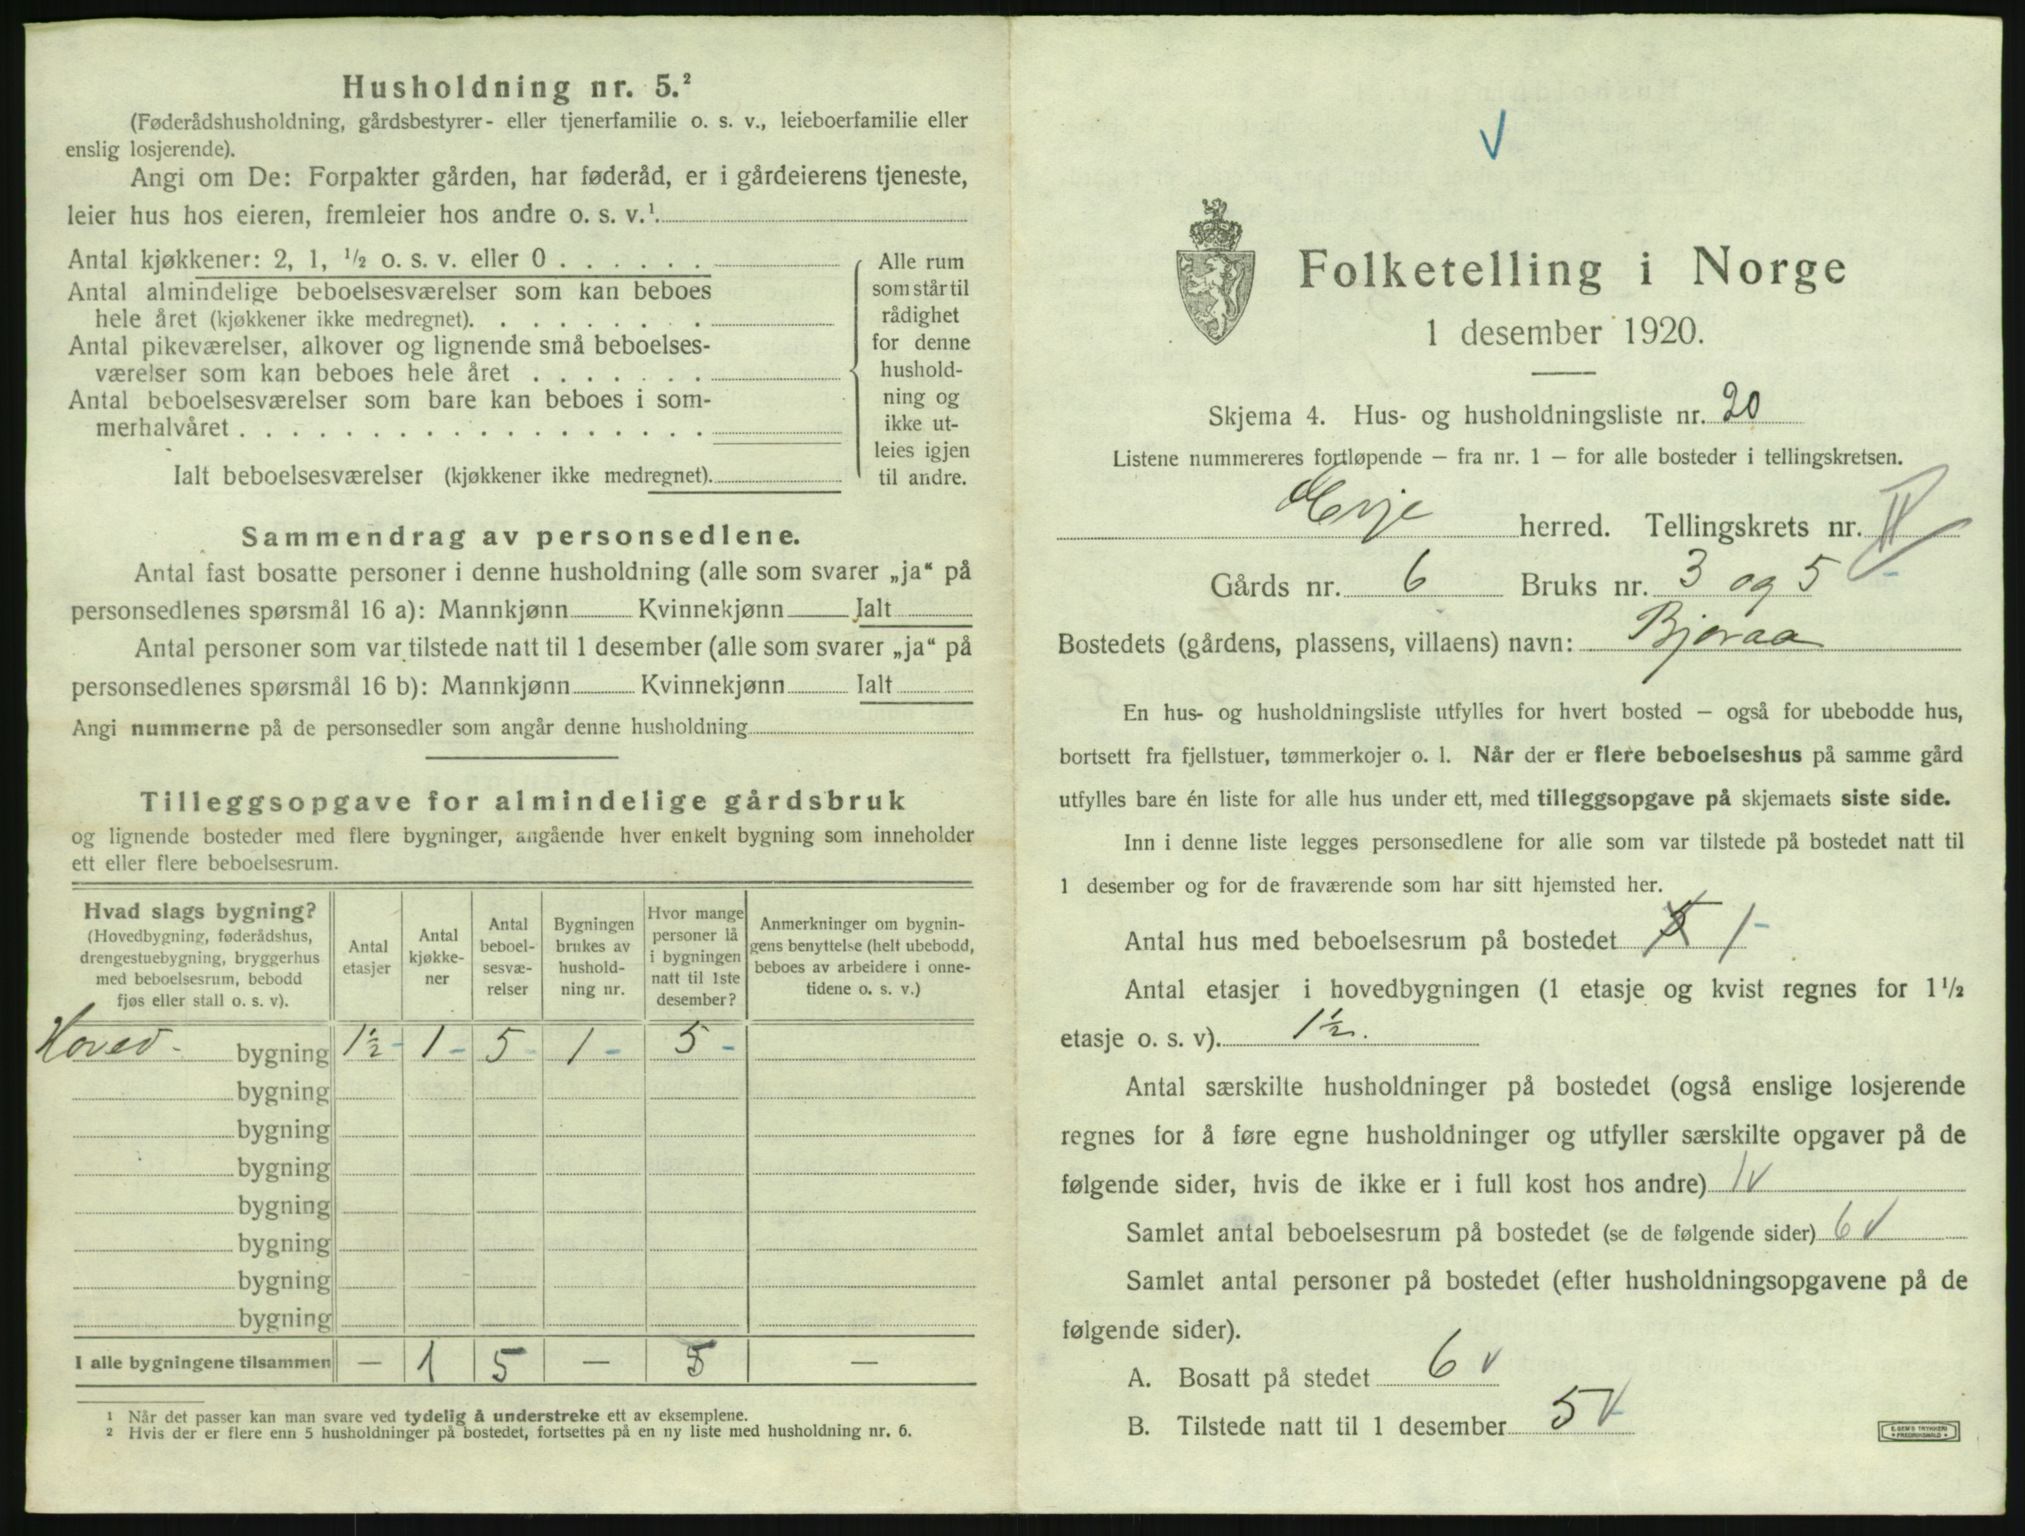 Husholdning nr. 5.²
(Føderådshusholdning, gårdsbestyrer- eller tjenerfamilie o. s. v., leieboerfamilie eller
enslig losjerende).
Angi om De: Forpakter gården, har føderåd, er i gårdeierens tjeneste,
leier hus hos eieren, fremleier hos andre o. s. v.¹
Antal kjøkkener: 2, 1, ½ o. s. v. eller 0 . . . . . .
Antal almindelige beboelsesværelser som kan beboes
hele året (kjøkkener ikke medregnet). . . . . . . . .
Antal pikeværelser, alkover og lignende små beboelses-
værelser som kan beboes hele året . . . . . . .
Antal beboelsesværelser som bare kan beboes i som-
merhalvåret . . . . . . . . . . . . . . . . . .
Ialt beboelsesværelser (kjøkkener ikke medregnet).
Alle rum
som står til
rådighet
for denne
hushold-
ning og
ikke ut-
leies igjen
til andre.
Sammendrag av personsedlene.
Antal fast bosatte personer i denne husholdning (alle som svarer „ja“ på
personsedlenes spørsmål 16 a): Mannkjønn Kvinnekjønn Ialt
Antal personer som var tilstede natt til 1 desember (alle som svarer „ja“ på
personsedlenes spørsmål 16 b): Mannkjønn Kvinnekjønn Ialt
Angi nummerne på de personsedler som angår denne husholdning
Tilleggsopgave for almindelige gårdsbruk
og lignende bosteder med flere bygninger, angående hver enkelt bygning som inneholder
ett eller flere beboelsesrum.
Hvad slags bygning?
(Hovedbygning, føderådshus,
drengestuebygning, bryggerhus
med beboelsesrum, bebodd
fjøs eller stall o. s. v).
Antal
etasjer
Antal
kjøkke-
ner
Antal
beboel-
sesvæ-
relser
Bygningen
brukes av
hushold-
ning nr.
Hvor mange
personer lå
i bygningen
natt til 1ste
desember?
Anmerkninger om bygnin-
gens benyttelse (helt ubebodd,
beboes av arbeidere i onne-
tidene o. s. v.)
Hoved- bygning 1½ - 1 - 5 - 1 - 5 -
bygning
bygning
bygning
bygning
bygning
bygning
bygning
I alle bygningene tilsammen — 1 5 — 5 —
¹ Når det passer kan man svare ved tydelig å understreke ett av eksemplene.
² Hvis der er flere enn 5 husholdninger på bostedet, fortsettes på en ny liste med husholdning nr. 6.
V
Folketelling i Norge
1 desember 1920.
Skjema 4. Hus- og husholdningsliste nr. 20
Listene nummereres fortløpende – fra nr. 1 – for alle bosteder i tellingskretsen.
Evje herred. Tellingskrets nr. II
Gårds nr. 6 Bruks nr. 3 og 5 -
Bostedets (gårdens, plassens, villaens) navn: Bjoraa
En hus- og husholdningsliste utfylles for hvert bosted – også for ubebodde hus,
bortsett fra fjellstuer, tømmerkojer o. l. Når der er flere beboelseshus på samme gård
utfylles bare én liste for alle hus under ett, med tilleggsopgave på skjemaets siste side.
Inn i denne liste legges personsedlene for alle som var tilstede på bostedet natt til
1 desember og for de fraværende som har sitt hjemsted her.
Antal hus med beboelsesrum på bostedet 5 1 -
Antal etasjer i hovedbygningen (1 etasje og kvist regnes for 1½
etasje o. s. v). 1½.
Antal særskilte husholdninger på bostedet (også enslige losjerende
regnes for å føre egne husholdninger og utfyller særskilte opgaver på de
følgende sider, hvis de ikke er i full kost hos andre) 1 v
Samlet antal beboelsesrum på bostedet (se de følgende sider) 6 v
Samlet antal personer på bostedet (efter husholdningsopgavene på de
følgende sider).
A. Bosatt på stedet 6 v
B. Tilstede natt til 1 desember 5 v
E. SEM'S TRYKKERI
• FREDRIKSHALD •